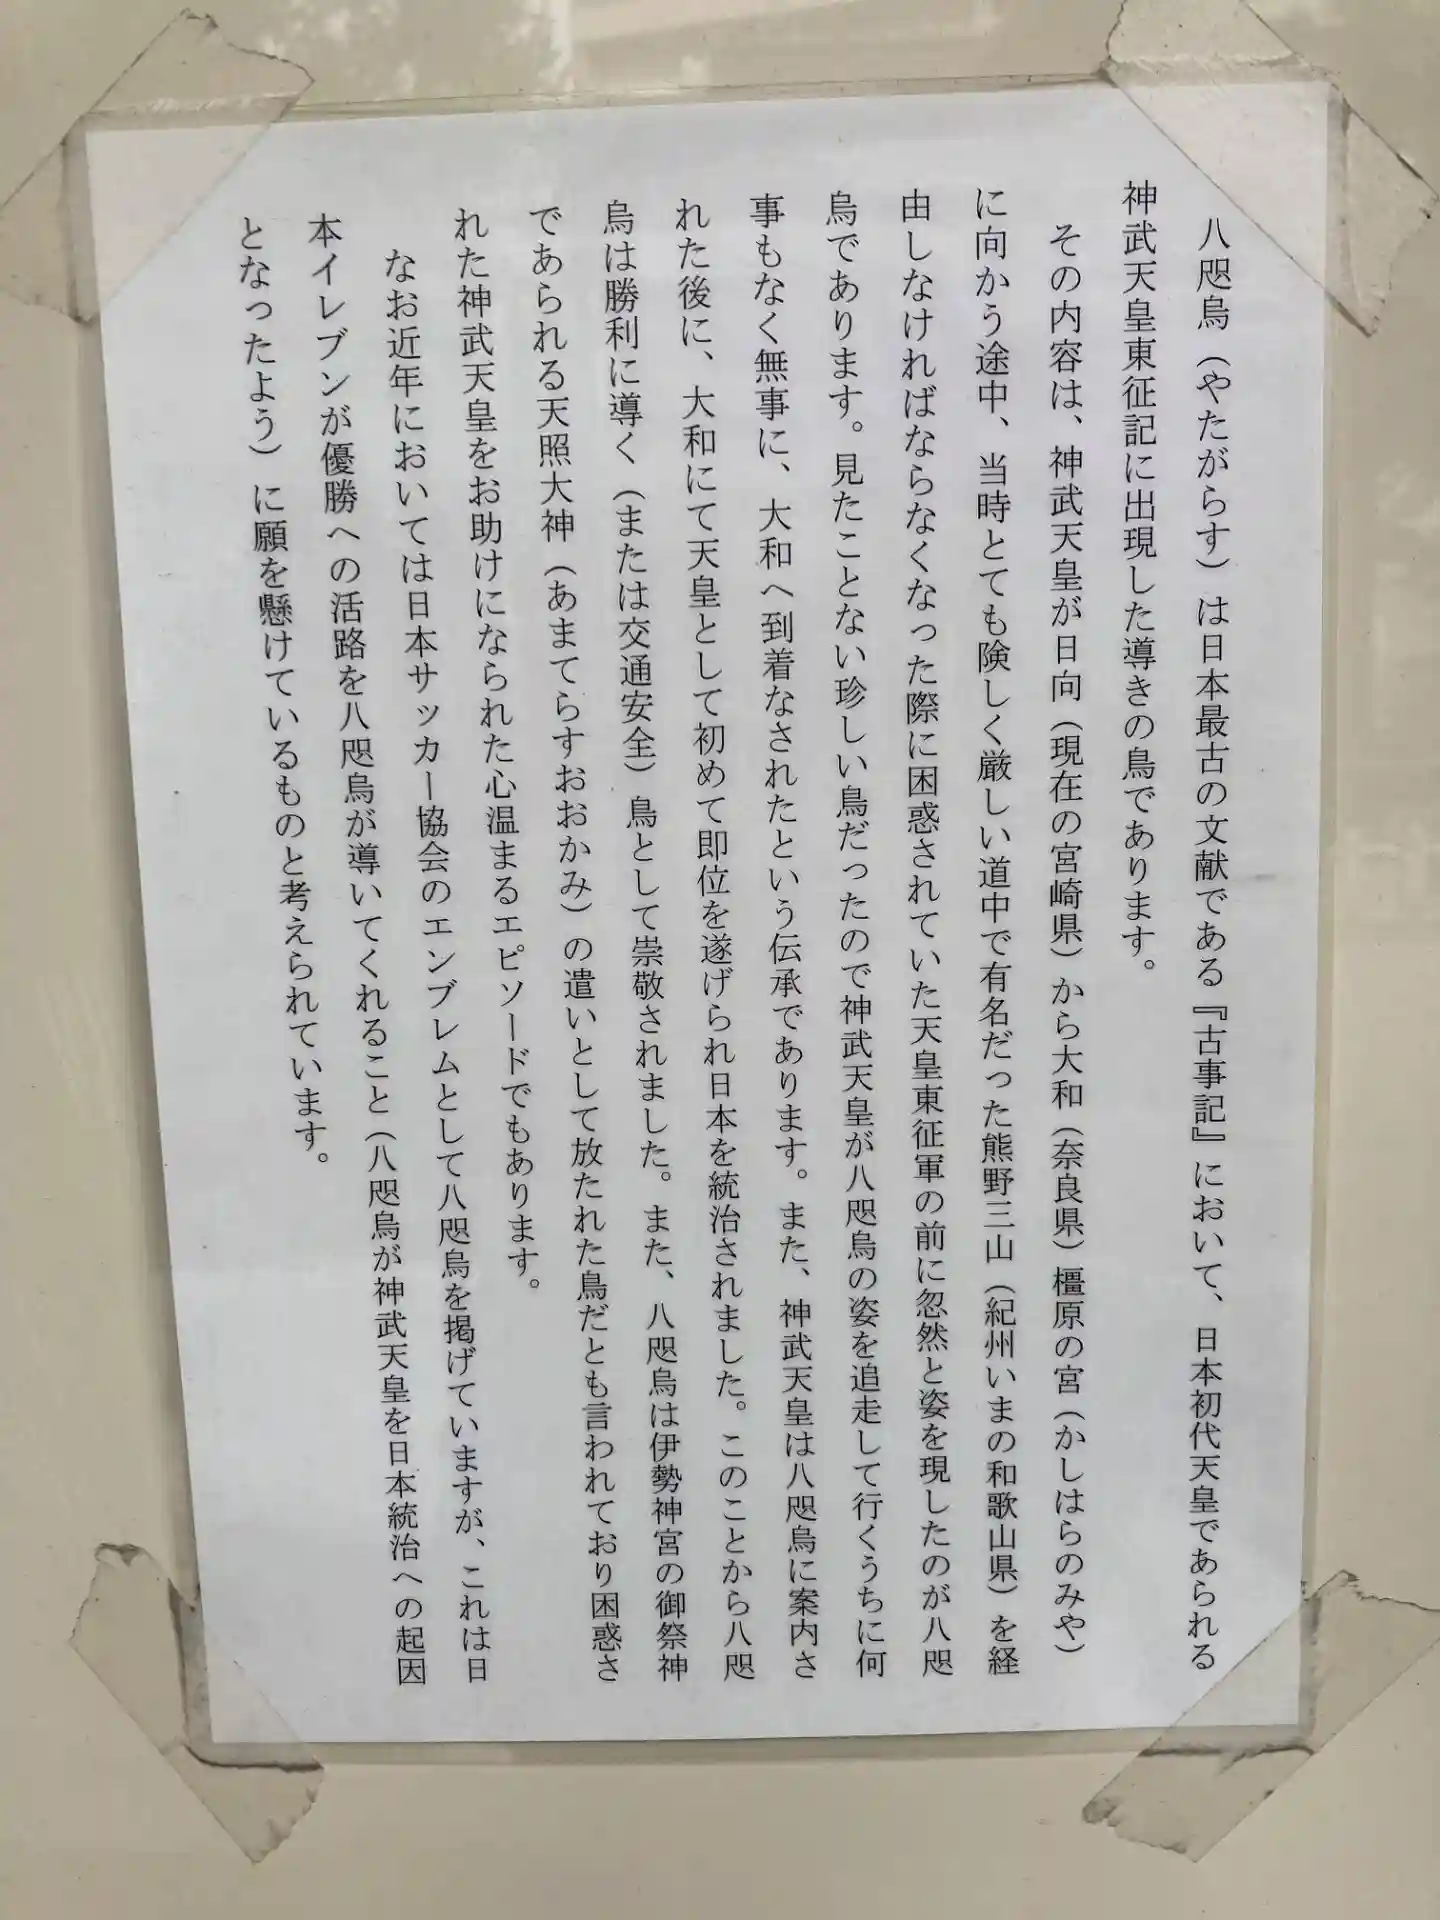 八咫烏（やたがらす）は日本最古の文献である『古事記』において、日本初代天皇であられる
神武天皇東征記に出現した導きの鳥であります。
その内容は、神武天皇が日向（現在の宮崎県）から大和（奈良県）橿原の宮（かしはらのみや）
に向かう途中、当時とても険しく厳しい道中で有名だった熊野三山（紀州いまの和歌山県）を経
由しなければならなくなった際に困惑されていた天皇東征軍の前に忽然と姿を現したのが八咫
烏であります。見たことない珍しい鳥だったので神武天皇が八咫烏の姿を追走して行くうちに何
事もなく無事に、大和へ到着なされたという伝承であります。また、神武天皇は八咫烏に案内さ
れた後に、大和にて天皇として初めて即位を遂げられ日本を統治されました。このことから八咫
烏は勝利に導く（または交通安全）鳥として崇敬されました。また、八咫烏は伊勢神宮の御祭神
であられる天照大神（あまてらすおおかみ）の遣いとして放たれた鳥だとも言われており困惑さ
れた神武天皇をお助けになられた心温まるエピソードでもあります。
なお近年においては日本サッカー協会のエンブレムとして八咫烏を掲げていますが、これは日
本イレブンが優勝への活路を八咫烏が導いてくれること（八咫烏が神武天皇を日本統治への起因
となったよう）に願を懸けているものと考えられています。